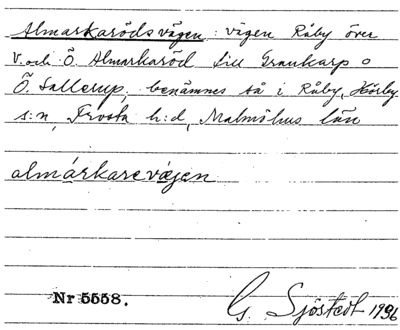 Almarkarödsvägen: vägen Råby över
V. och Ö. Almarkaröd till Grankarp o
Ö. Sallerup, benämnes så i Råby, Hörby
s:n, Frosta h:d, Malmöhus län
almárkarevægen
Nr 5558. G. Sjöstedt 1936